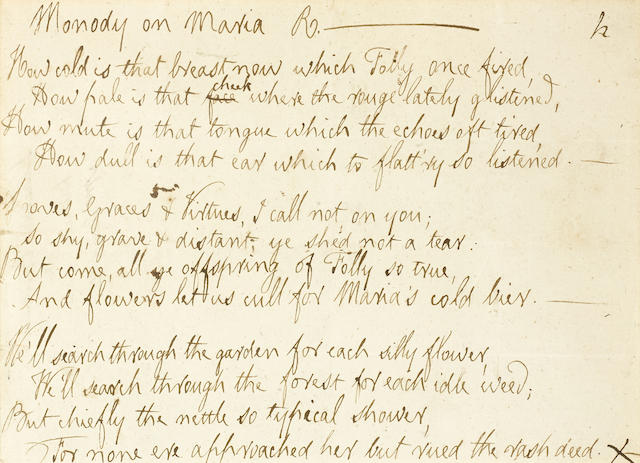 Monody on Maria R. —— h
How cold is that breast now which Folly once fired,
How pale is that face cheek where the rouge lately glistened,
How mute is that tongue which the echoes oft tired,
How dull is that ear which to flatt'ry so listened. —
Loves, Graces & Virtues, I call not on you;
so shy, grave & distant, ye shed not a tear:
But come, all ye offspring of Folly so true,
And flowers let us cull for Maria's cold bier. —
We'll search through the garden for each silly flower,
We'll search through the forest for each idle weed;
But chiefly the nettle so typical shower,
For none ere approached her but rued the rash deed. X